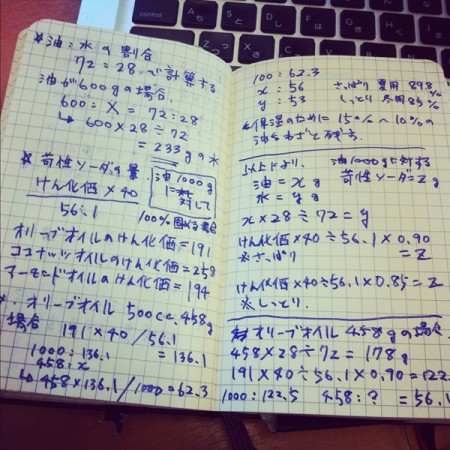 ※油:水の割合
72=28で計算する
油が600gの場合、
600:X=72:28
↳600×28÷72
=233gの水
※苛性ソーダの量
けん化価×40
56.1
油1000g
1=対して
100%固める場合
オリーブオイルのけん化価=191
ココナッツオイルのけん化価=258
アーモンドオイルのけん化価=194
オリーブオイル 500cc、458g
場合
191×40/56.1
=136.1
1000:136.1
458:x
↳458×136.1/1000=62.3
100:62.3
x:56 さっぱり 夏用 89.8%
y:53 しっとり 冬用85%
保湿のために15%〜10%の
油をわざと残す。
以上より、油1000gに対する
油=xg 苛性ソーダ=zg
水=yg
x×28÷72=y
けん化価×40÷56.1×0.90
※さっぱり =z
けん化価×40÷56.1×0.85=z
※しっとり。
オリーブオイル458gの場合
458×28÷72=178g
191×40÷56.1×0.90=122.
1000:122.5 458:?=56.1